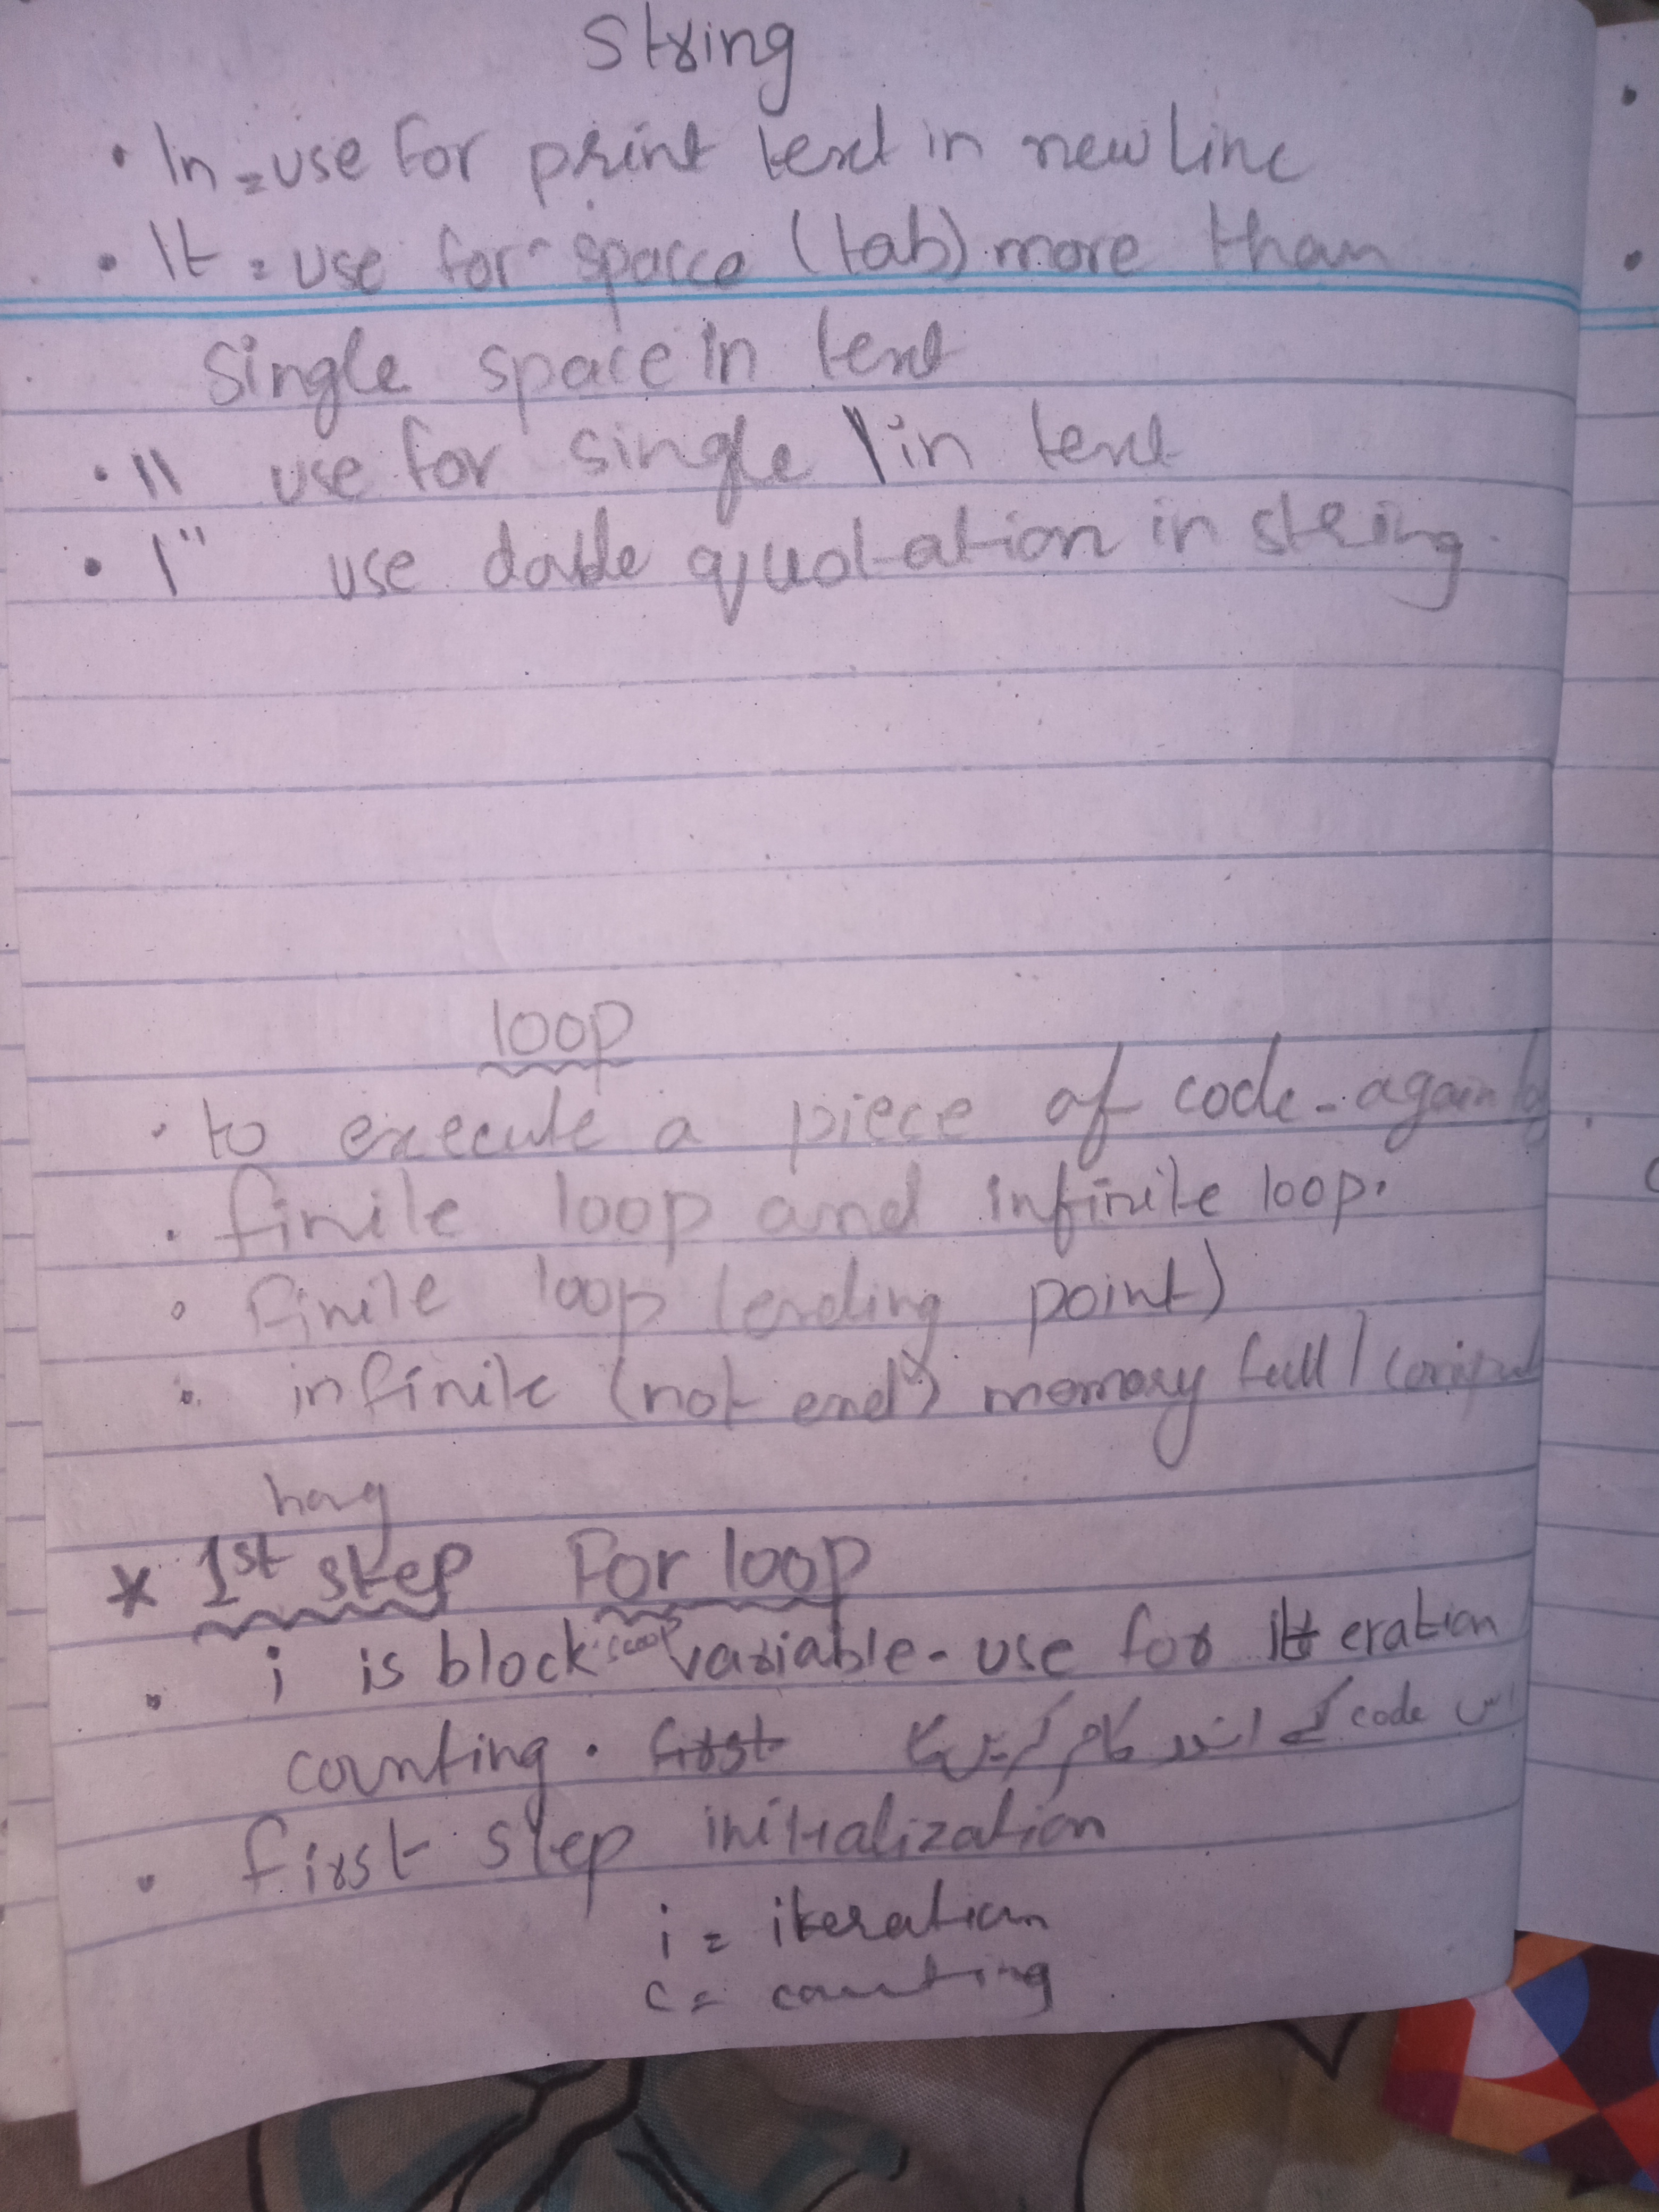 String
• \n = use for print text in new line
• \t = use for spacce (tab) more than
single space in text
• \\ use for single \ in text
• \" use doble quotation in string.
loop
• to execute a piece of code - again
• finite loop and infinite loop.
• finite loop (ending point)
• infinite (not end) memory full /
hang
* 1st step For loop
• i is block scop variable - use for iteration
counting . first اس code کے اندر کام کریں گا
• first step initialization
i = iteration
c = counting